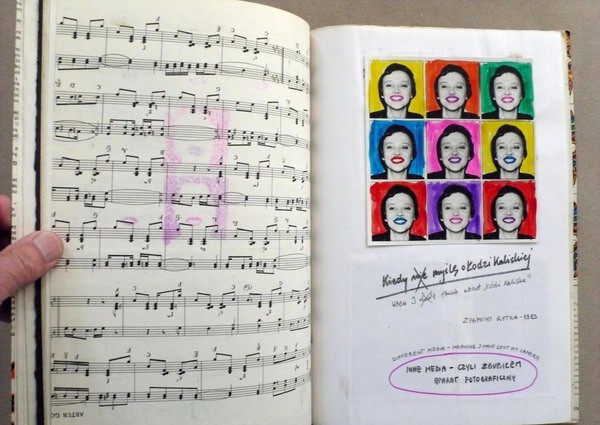 Kiedy nie myślę o Łodzi Kaliskiej
When I don't think about "Łódź Kaliska"
ZYGMUNT RYTKA - 1983
DIFFERENT MEDIA - MEANING I HAVE LOST MY CAMERA
INNE MEDIA - CZYLI ZGUBIŁEM
APARAT FOTOGRAFICZNY